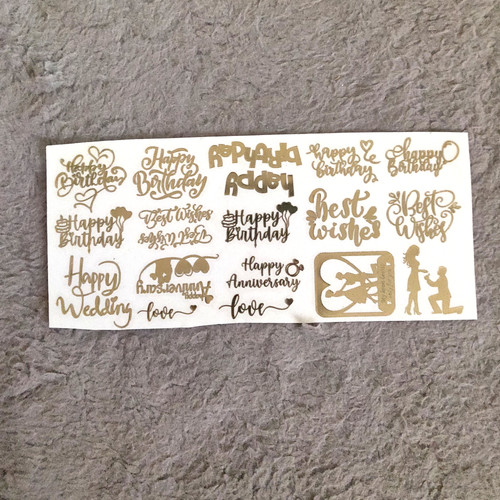 Happy
Birthday
Happy
Birthday
Happy
Birthday
happy
birthday
happy
Birthday
Happy
Birthday
Best Wishes
Best Wishes
Happy
Birthday
Best
wishes
Best
Wishes
Happy
Wedding
Happy
Anniversary
Happy
Anniversary
love
love